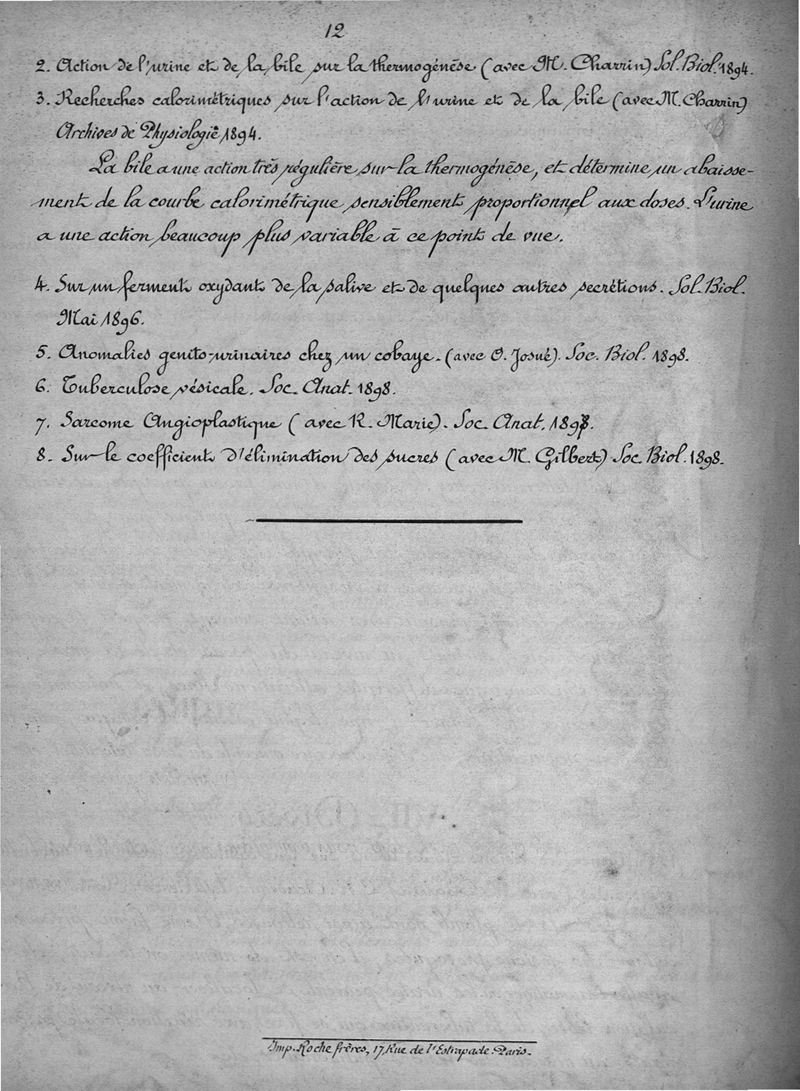 12
2. Action de l'urine et de la bile sur la thermogénèse (avec M. Charrin) Sol. Biol. 1894.
3. Recherches calorimétriques sur l'action de l'urine et de la bile (avec M. Charrin)
Archives de Physiologie 1894.
La bile a une action très régulière sur la thermogénèse, et détermine un abaisse-
ment de la courbe calorimétrique sensiblement proportionnel aux doses. L'urine
a une action beaucoup plus variable à ce point de vue.
4. Sur un ferment oxydant de la salive et de quelques autres secrétions. Sol. Biol.
Mai 1896.
5. Anomalies genito-urinaires chez un cobaye. (avec O. Josué). Soc. Biol. 1898.
6. Tuberculose vésicale. Soc. Anat. 1898.
7. Sarcome Angioplastique (avec R. Marie). Soc. Anat. 1898.
8. Sur le coefficient d'élimination des sucres (avec M. Gilbert) Soc. Biol. 1898.
Imp. Roche frères, 17 Rue de l'Estrapade Paris.